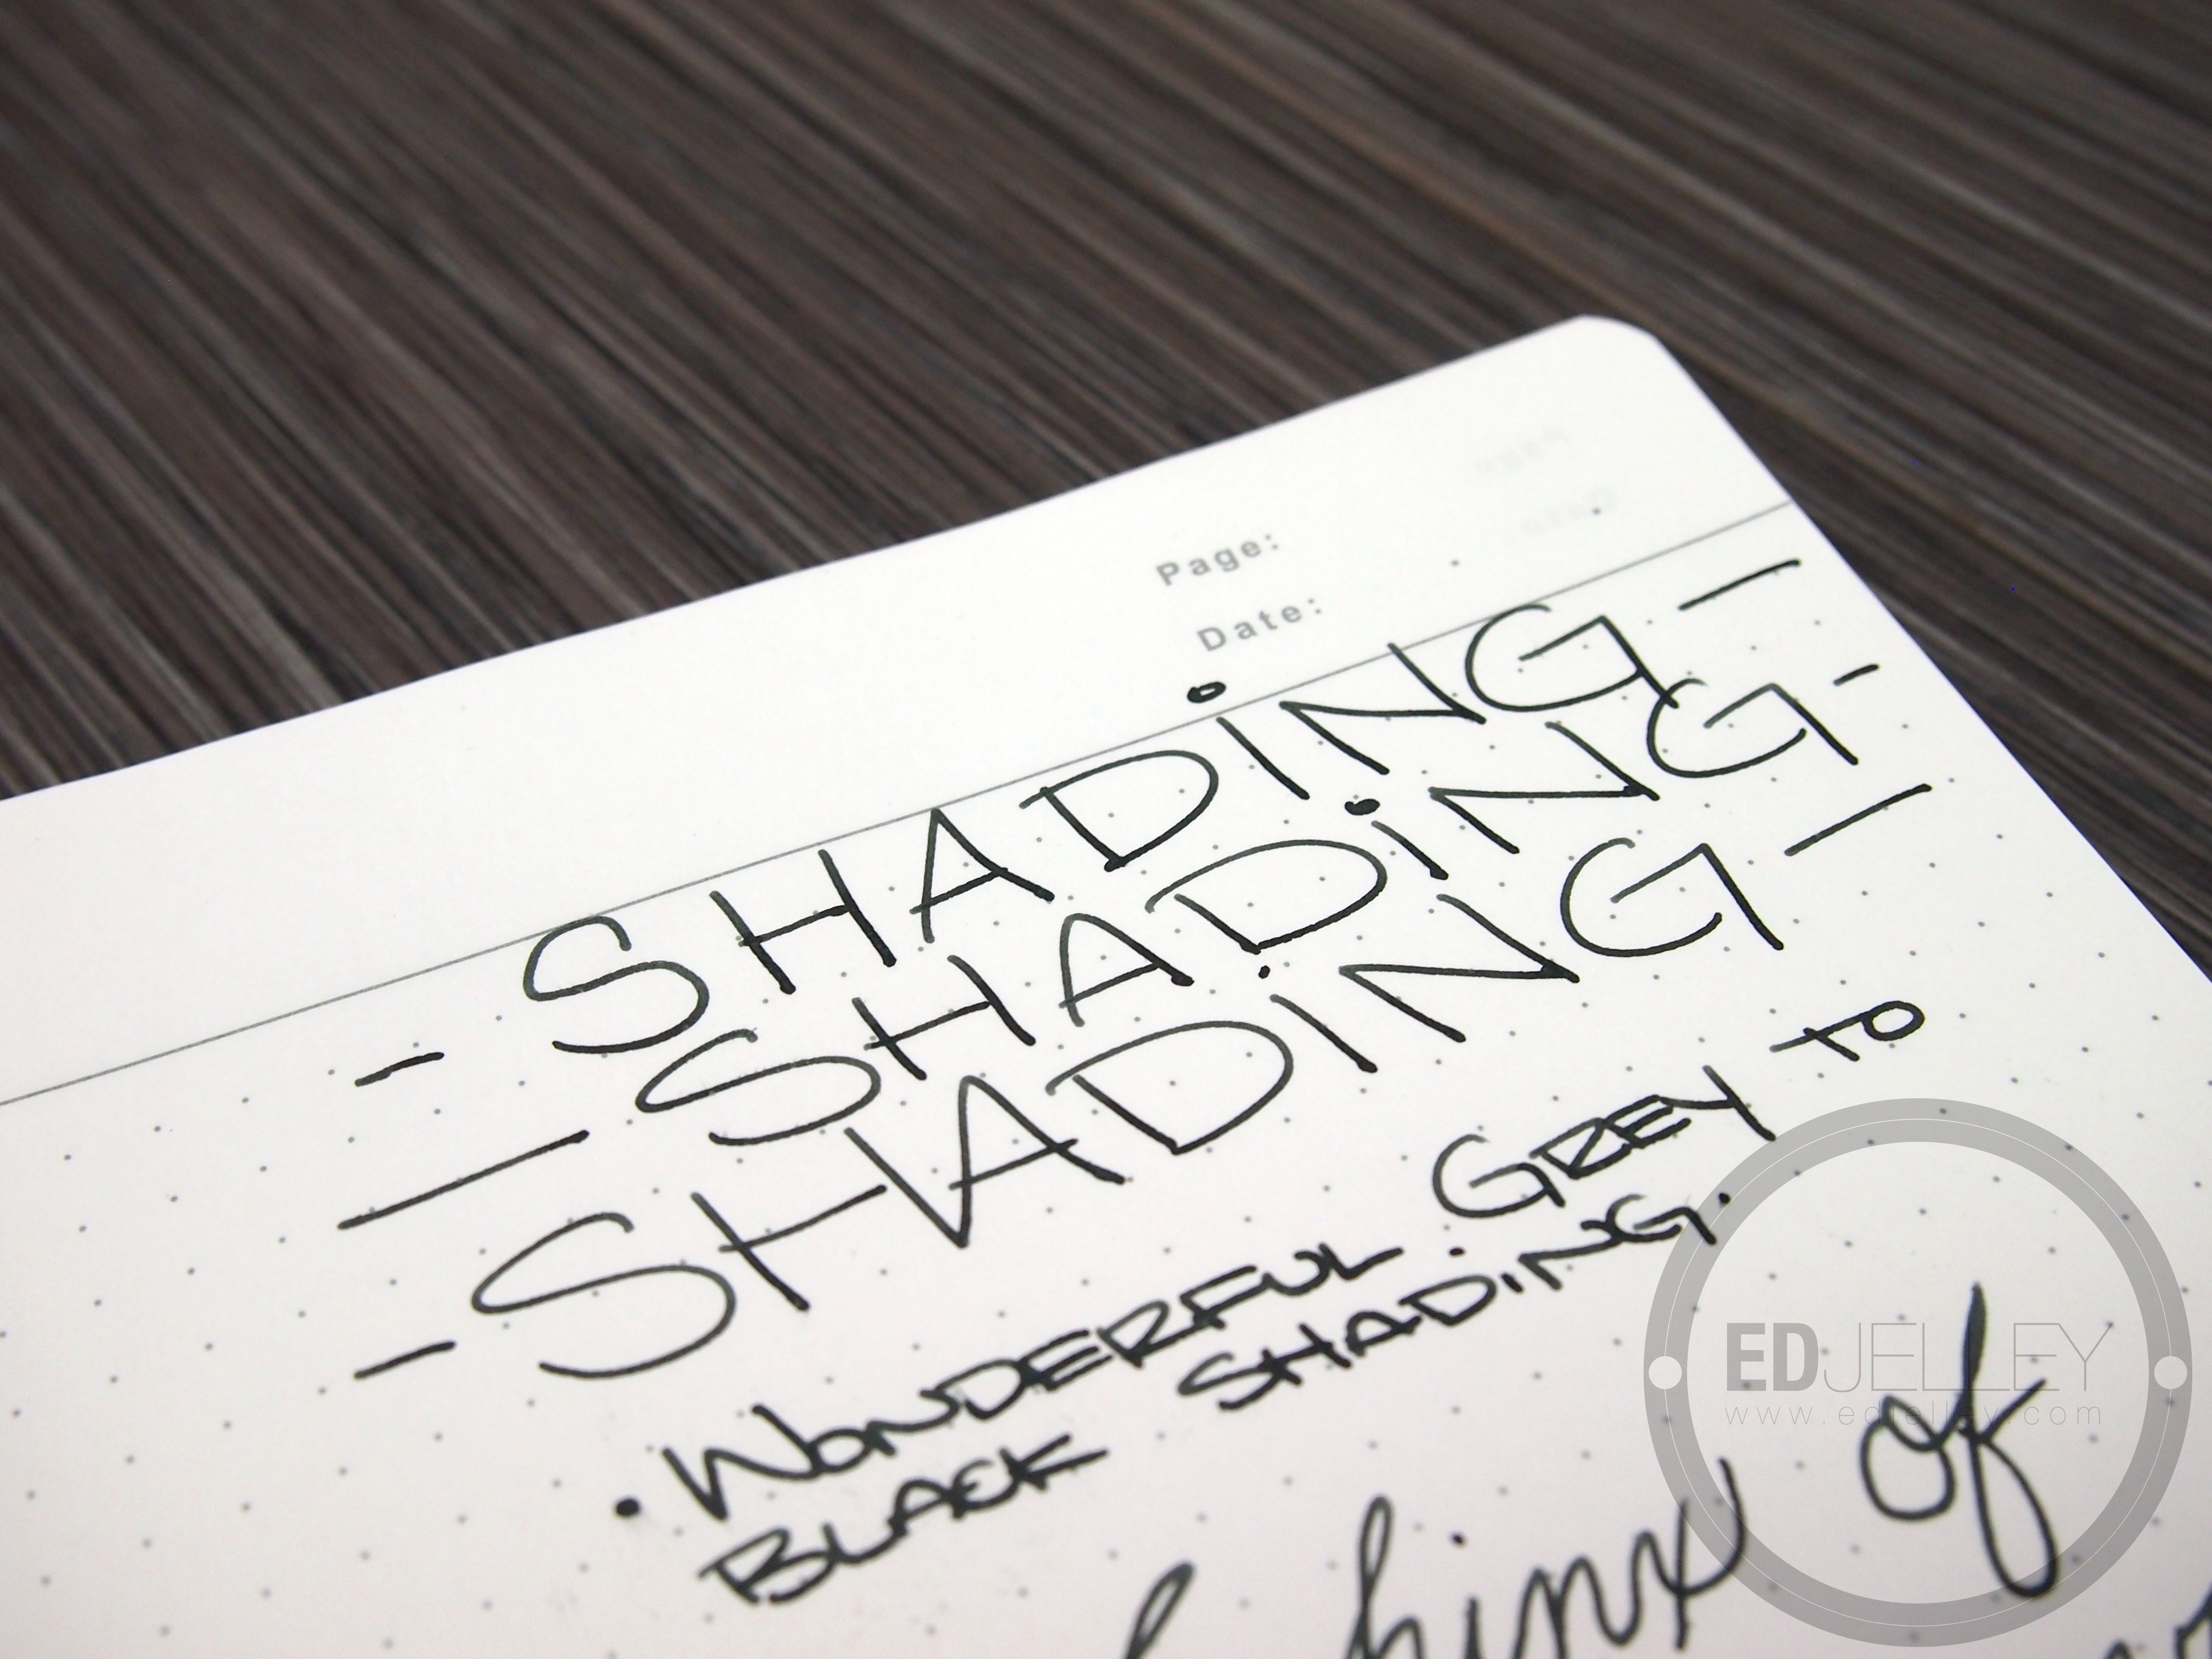 Page:
Date:
- SHADING -
- SHADING -
- SHADING -
• WONDERFUL GREY
BLACK SHADING.
of
EDJELLEY
www.edjelley.com